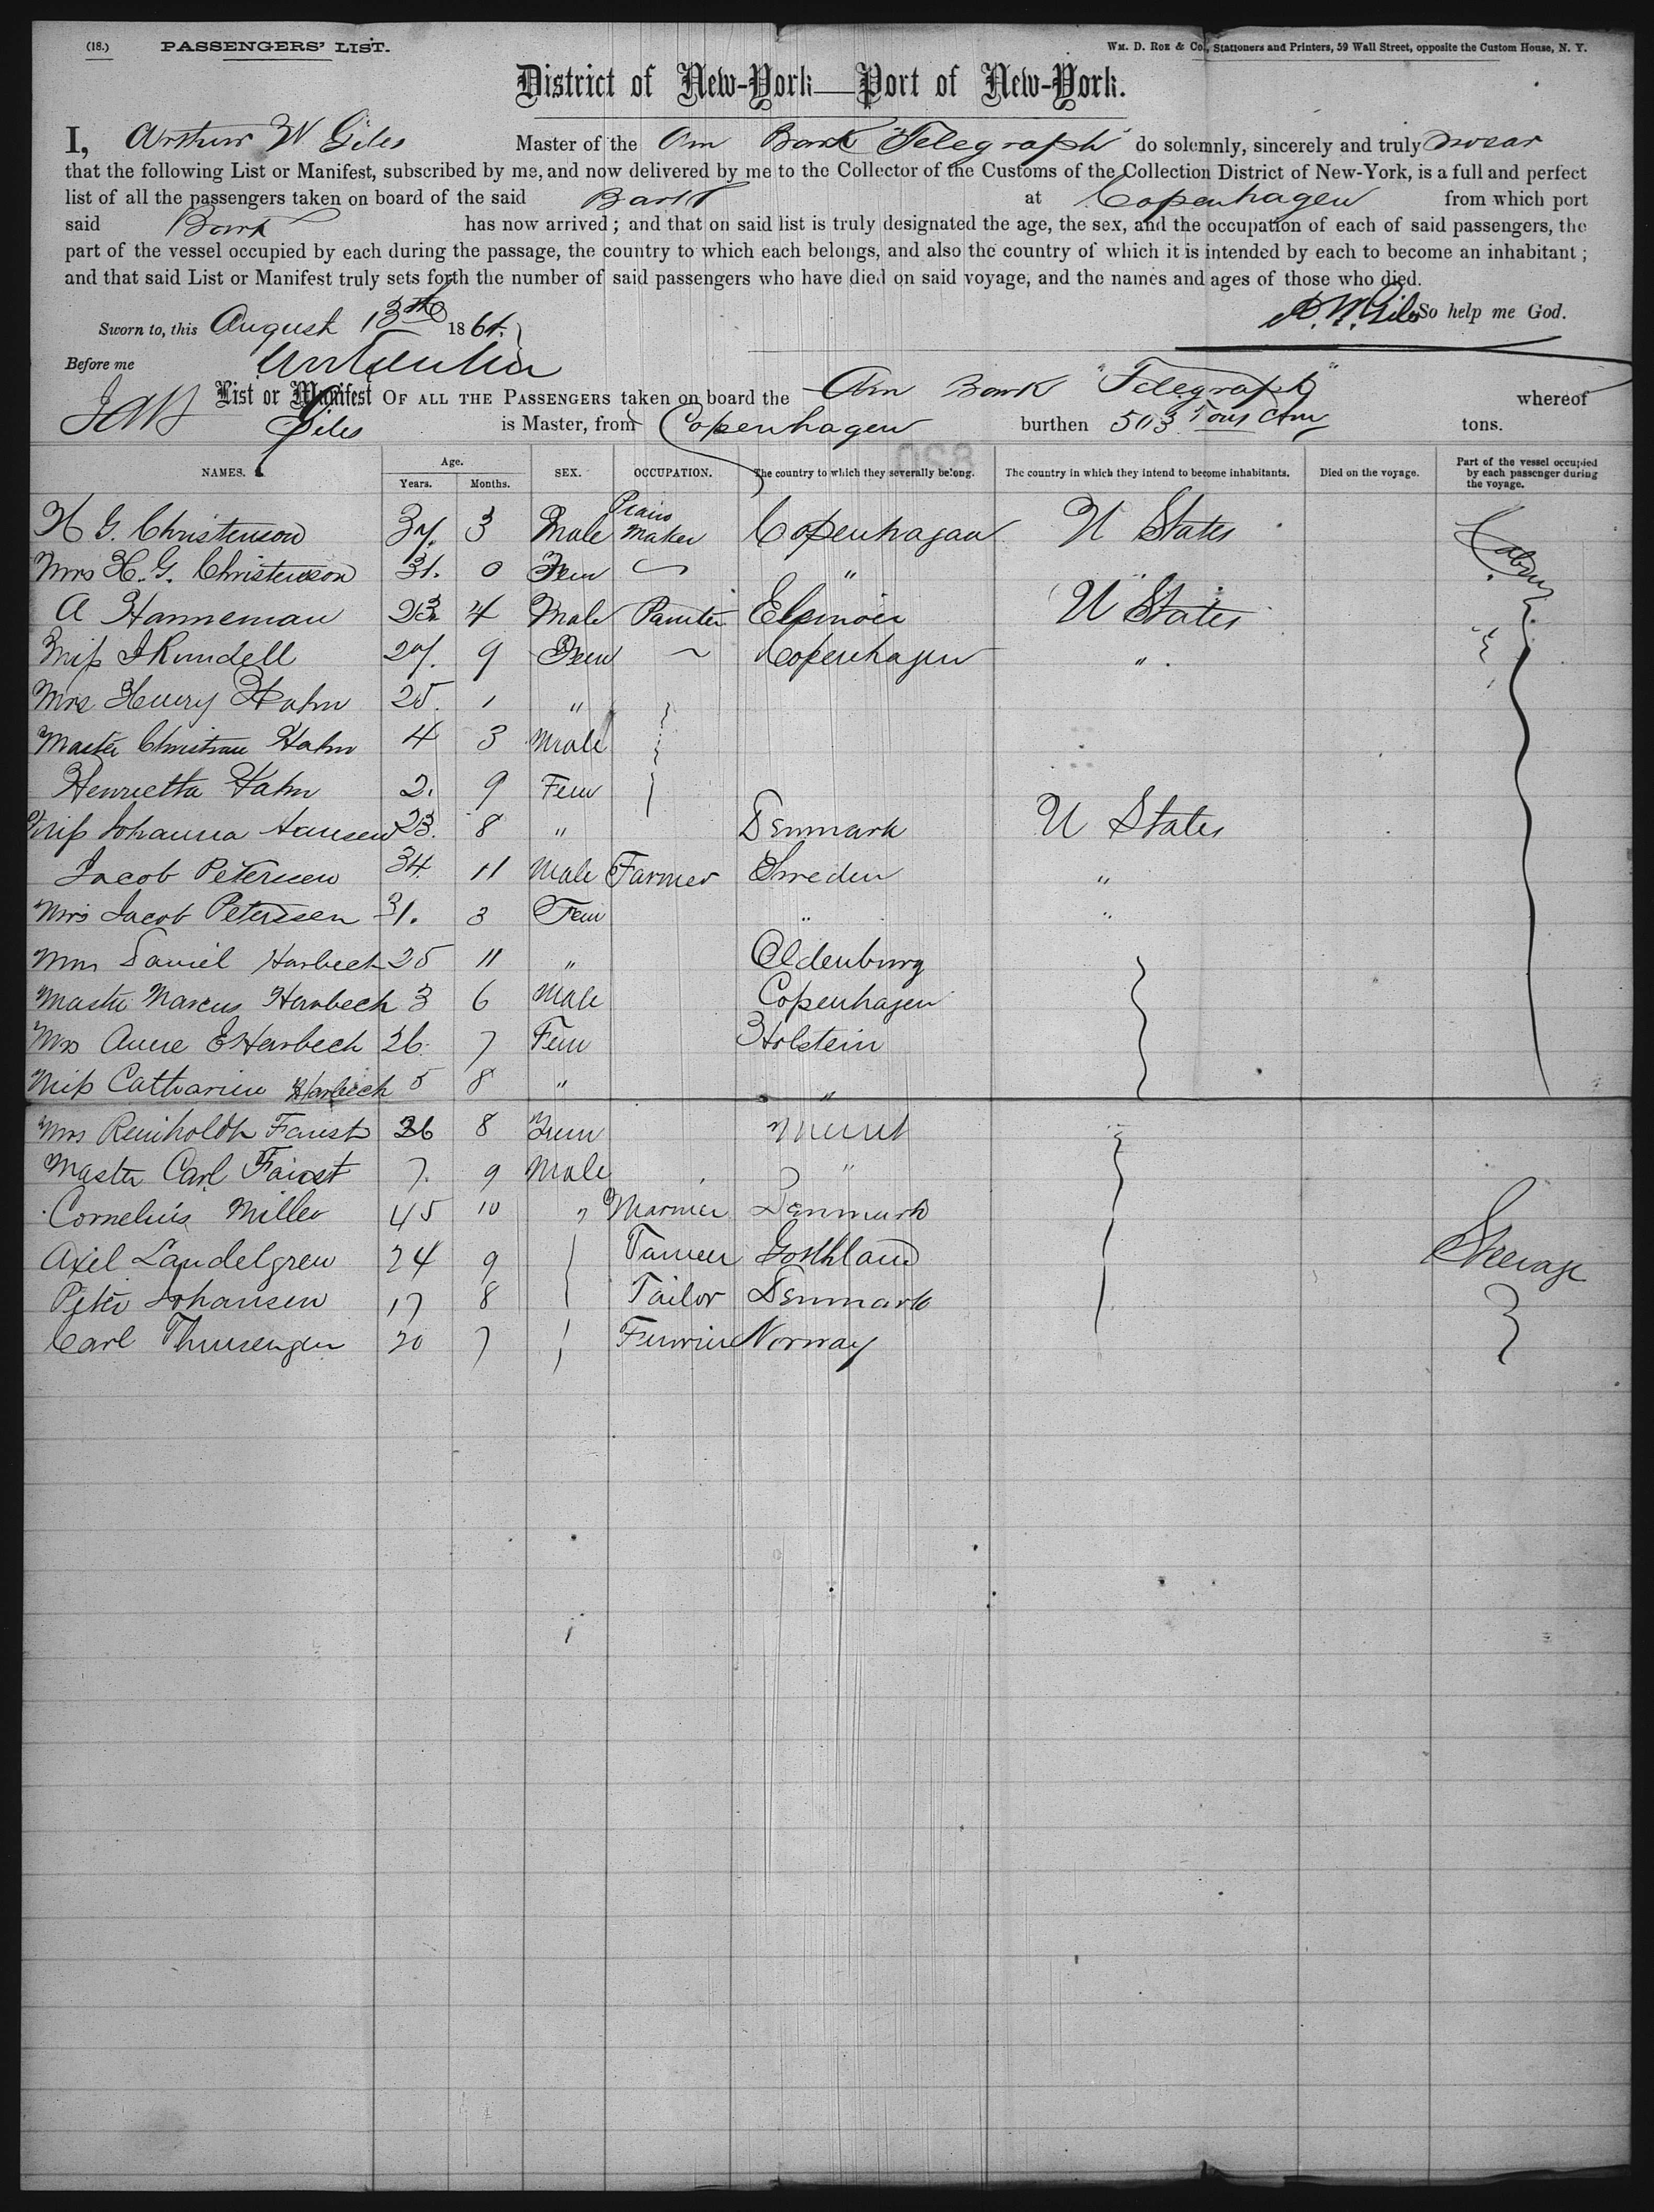 (18.) PASSENGERS' LIST. Wm. D. Roe & Co., Stationers and Printers, 59 Wall Street, opposite the Custom House, N. Y.
District of New-York—Port of New-York.
I, Arthur W Giles Master of the Am Bark "Telegraph" do solemnly, sincerely and truly swear
that the following List or Manifest, subscribed by me, and now delivered by me to the Collector of the Customs of the Collection District of New-York, is a full and perfect
list of all the passengers taken on board of the said Bark at Copenhagen from which port
said Bark has now arrived; and that on said list is truly designated the age, the sex, and the occupation of each of said passengers, the
part of the vessel occupied by each during the passage, the country to which each belongs, and also the country of which it is intended by each to become an inhabitant;
and that said List or Manifest truly sets forth the number of said passengers who have died on said voyage, and the names and ages of those who died.
A. W. Giles So help me God.
Sworn to, this August 13th 1864.
Before me
List or Manifest OF ALL THE PASSENGERS taken on board the Am Bark "Telegraph" whereof
Giles is Master, from Copenhagen burthen 503 Tons Am tons.
NAMES. Age. Years. Months. SEX. OCCUPATION. The country to which they severally belong. The country in which they intend to become inhabitants. Died on the voyage. Part of the vessel occupied by each passenger during the voyage.
H G. Christenson 37. 3 Male Piano Maker Copenhagan U States Cabin
Mrs H. G. Christenson 31. 0 Fem "
A Hanneman 23 4 Male Painter Elsinoir U States
Miss J Rundell 27. 9 Fem Copenhagen "
Mrs Henry Hahn 25. 1 "
Master Christian Hahn 4 3 Male
Henrietta Hahn 2. 9 Fem
Miss Johanna Hansen 23. 8 " Denmark U States
Jacob Petersen 34 11 Male Farmer Sweden "
Mrs Jacob Peterssen 31. 3 Fem " "
Mrs Daniel Harbech 25 11 " Oldenburg
Master Marcus Harbech 3 6 Male Copenhagen
Mrs Anne E Harbech 26. 7 Fem Holstein
Miss Catharine Harbech 5 8 " "
Mrs Reinholdh Faust 36 8 Fem
Master Carl Faust 7. 9 Male "
Cornelius Miller 45 10 " Mariner Denmark
Axel Landelgren 24 9 Tanner Gothland Steerage
Peter Johansen 17 8 Tailor Denmark
Carl 20 7 Norway